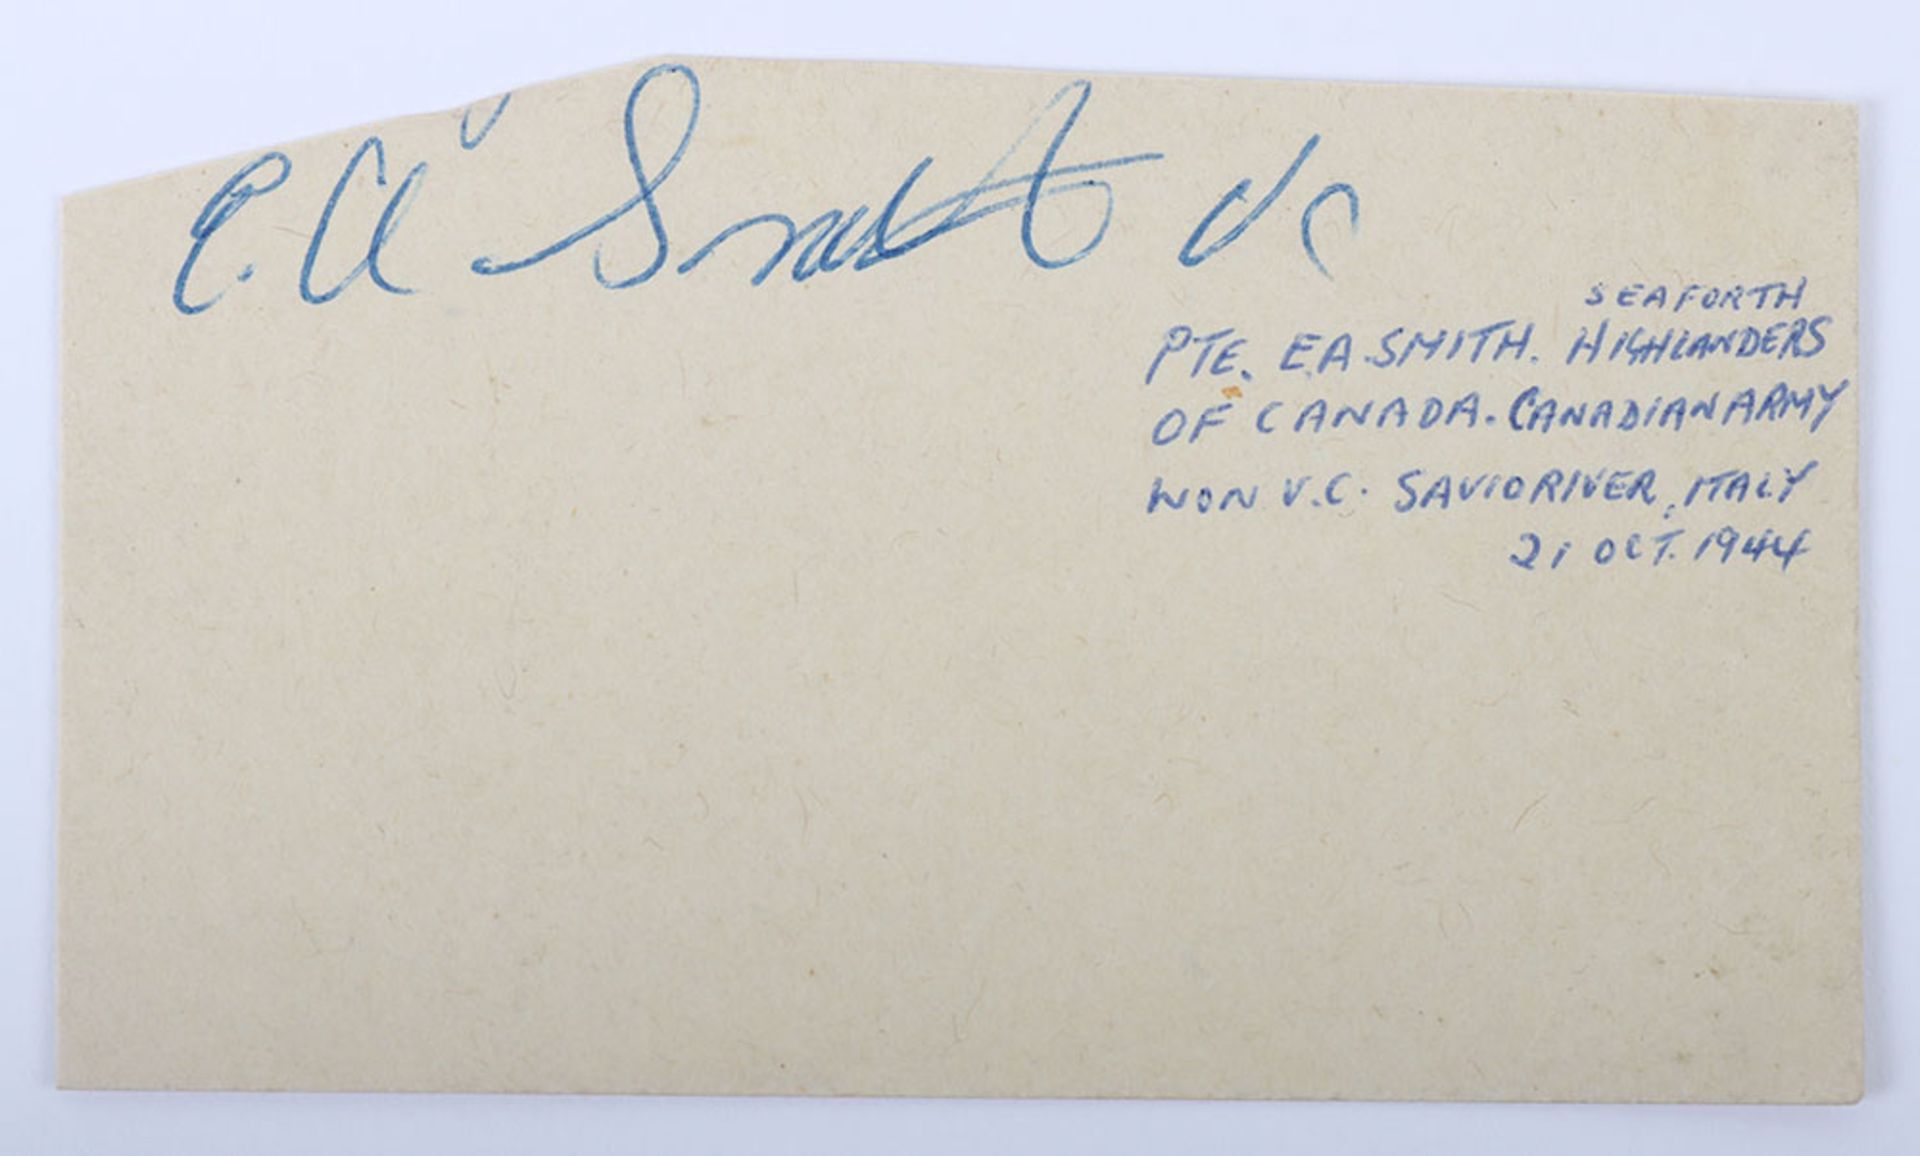 E. A Smith VC
SEAFORTH
PTE. E.A. SMITH. HIGHLANDERS
OF CANADA. CANADIAN ARMY
WON V.C. SAVIO RIVER, ITALY
21 OCT. 1944